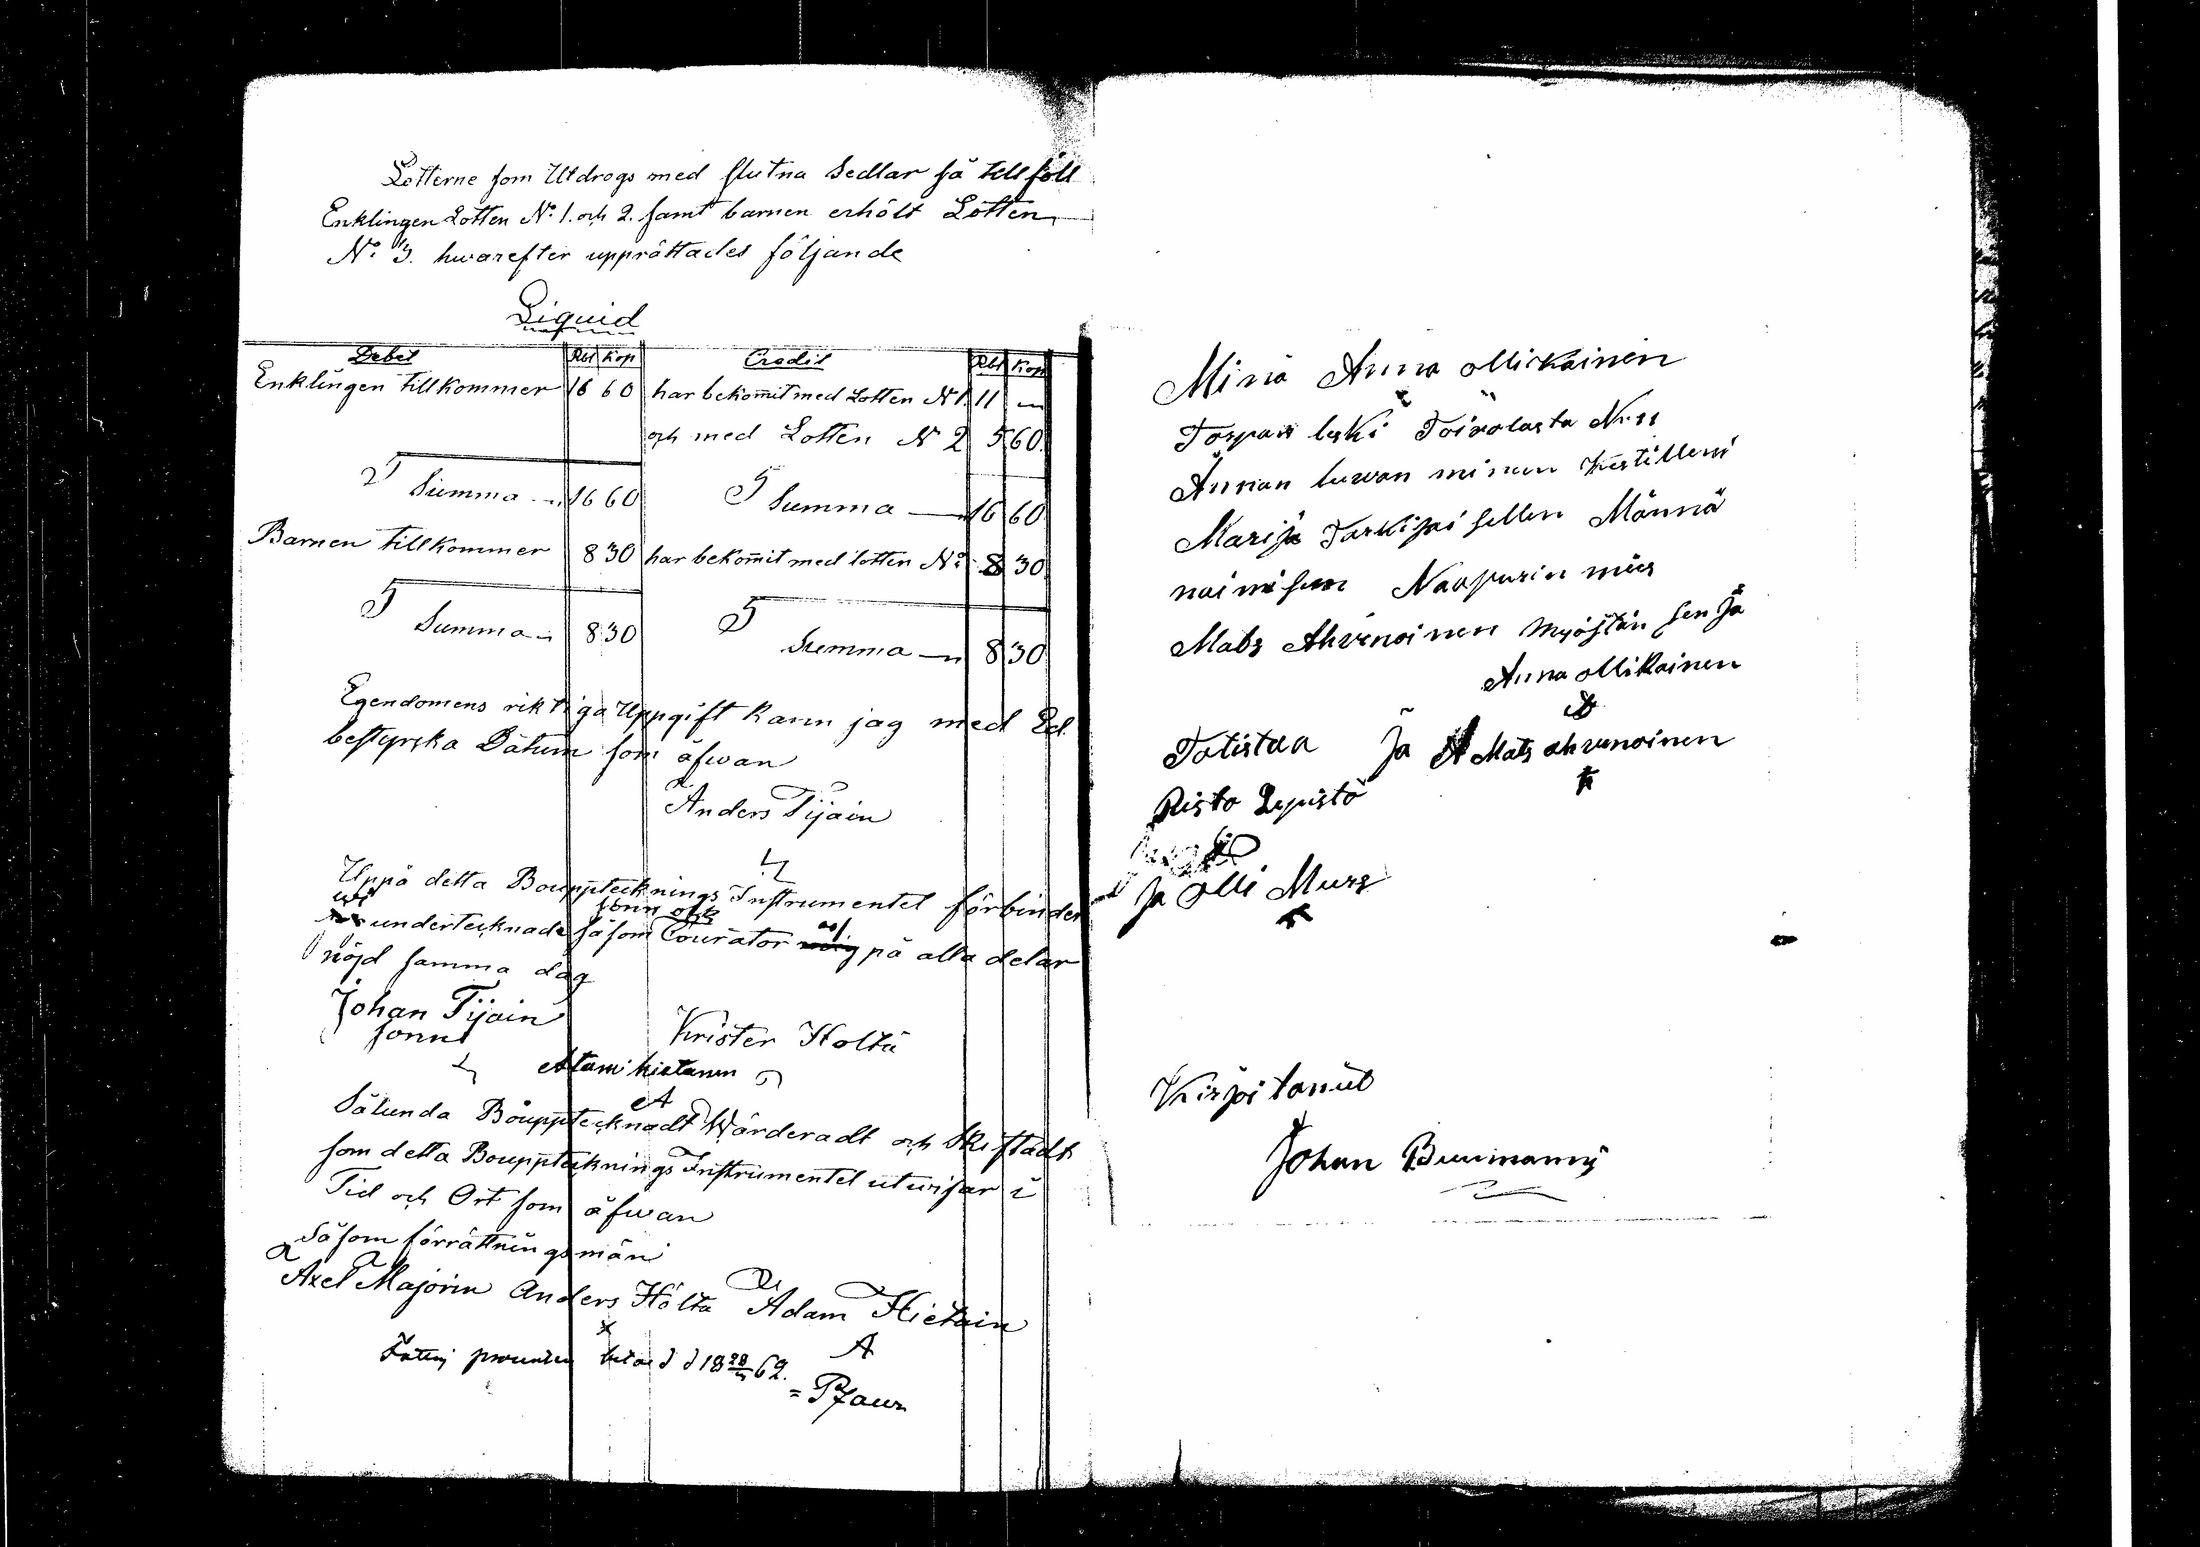 Lotterne som Utdrogs med slutna Sedlar så tillföll
Enklingen Lotten No. 1. och 2. samt barnen erhölt Lotten
No. 3. hwarefter upprättades följande
Liquid
Debet Rbl Kop Credit Rbl Kop
Enklingen tillkommer 16 60 har bekommit med Lotten N 1. 11 —
och med Lotten N 2 5 60.
Summa — 16 60 Summa — 16 60
Barnen tillkommer 8 30 har bekommit med lotten No. 8 30
Summa — 8 30 Summa — 8 30
Egendomens riktiga Uppgift kann jag med Ed.
bestyrska Datum som äfwan
Anders Tijain
Uppå detta Bouppteknings Instrumentet förbinder
wi undertecknade såsom sonn och Courator på alla delar
nöjd samma dag
Johan Tijain
sonn
Krister Holta
Atami hietanen
A
Sålunda Boupptecknadt Wärderadt och Skiftadt
som detta Bouppteknings Instrumentet utwisar i
Tid och Ort som äfwan
Såsom förrättningsmän
Axel Majorin Anders Hölta Adam Hietain
x A
betaed d 18 28 62.
Mina Anna ollickainen
Torpan leski Toivolasta N: 11
Annan luwan minun
Marija Tarkijaisellen Männä
naimiseen Naapurin mies
Mats Ahvenoinen myöstän sen Ja
Anna ollikainen
Totistaa Ja Mats ahvenoinen
Risto Lepistö
Ja olli Murs
Kirjoitanut
Johan Buumanni